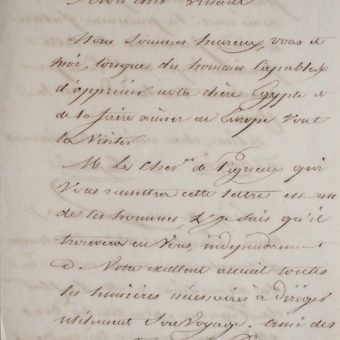 Mon cher
Nous sommes heureux, vous et
moi, lorsque des hommes capables
d'apprécier notre chère Egypte et
de la faire aimer en Europe vont
la visiter.
M. Le Chevr. de qui
Vous remettra cette lettre est un
de ces hommes, & je sais qu'il
trouvera en Vous, indépendamment
de Votre excellent accueil toutes
les lumières nécessaires à diriger
utilement son voyage. Ami des